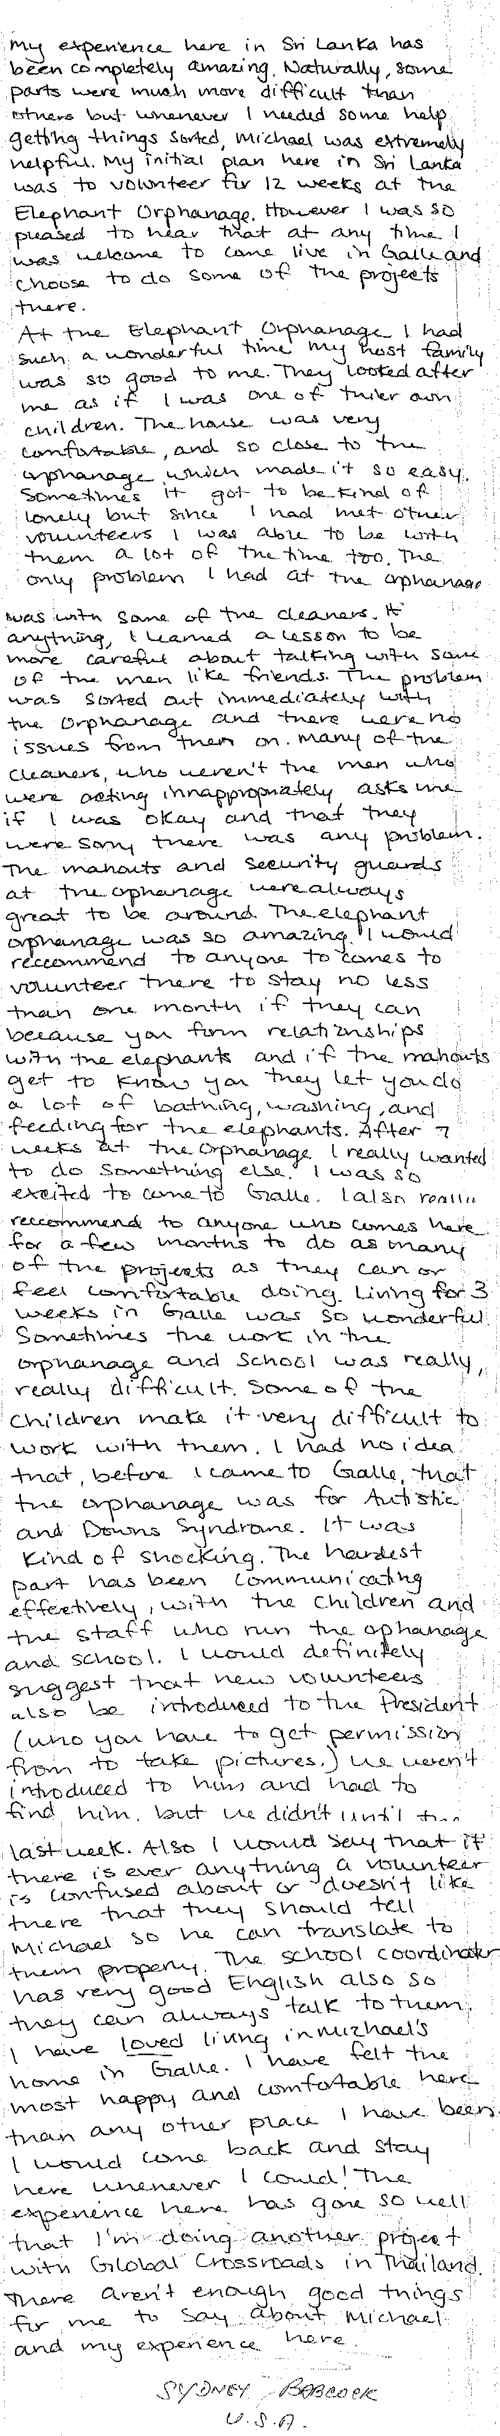 My experience here in Sri Lanka has
been completely amazing. Naturally, some
parts were much more difficult than
others but whenever I needed some help
getting things sorted, Michael was extremely
helpful. My initial plan here in Sri Lanka
was to volunteer for 12 weeks at the
Elephant Orphanage. However I was so
pleased to hear that at any time I
was welcome to come live in Galle and
choose to do some of the projects
there.
At the Elephant Orphanage I had
such a wonderful time my host family
was so good to me. They looked after
me as if I was one of thier own
children. The house was very
comfortable, and so close to the
orphanage which made it so easy.
Sometimes it got to be kind of
lonely but since I had met other
volunteers I was able to be with
them a lot of the time too. The
only problem I had at the orphanage
was with some of the cleaners. If
anything, I learned a lesson to be
more careful about talking with some
of the men like friends. The problem
was sorted out immediately with
the Orphanage and there were no
issues from then on. Many of the
cleaners, who weren't the men who
were acting innappropriately asks me
if I was okay and that they
were sorry there was any problem.
The mahouts and security guards
at the orphanage were always
great to be around. The elephant
orphanage was so amazing. I would
reccommend to anyone to comes to
volunteer there to stay no less
than one month if they can
because you form relationships
with the elephants and if the mahouts
get to know you they let you do
a lot of bathing, washing, and
feeding for the elephants. After 7
weeks at the orphanage I really wanted
to do something else. I was so
excited to come to Galle. I also really
reccommend to anyone who comes here
for a few months to do as many
of the projects as they can or
feel comfortable doing. Living for 3
weeks in Galle was so wonderful.
Sometimes the work in the
orphanage and school was really,
really difficult. Some of the
children make it very difficult to
work with them. I had no idea
that, before I came to Galle, that
the orphanage was for Autistic
and Downs Syndrome. It was
kind of shocking. The hardest
part has been communicating
effectively, with the children and
the staff who run the ophanage
and school. I would definitely
suggest that new volunteers
also be introduced to the President
(who you have to get permission
from to take pictures.) We weren't
introduced to him and had to
find him. but we didn't until the
last week. Also I would say that if
there is ever anything a volunteer
is confused about or doesn't like
there that they should tell
Michael so he can translate to
them properly. The school coordinator
has very good English also so
they can always talk to them.
I have loved living in Michael's
home in Galle. I have felt the
most happy and comfortable here
than any other place I have been.
I would come back and stay
here whenever I could! The
experience here has gone so well
that I'm doing another project
with Global Crossroads in Thailand.
There aren't enough good things
for me to say about Michael
and my experience here.
SYDNEY BABCOCK
U.S.A.